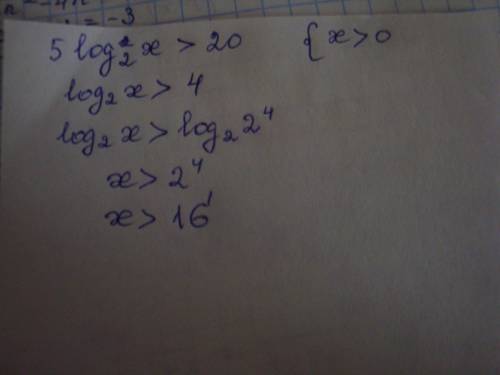 = -3
5 log₂² x > 20 { x > 0
log₂ x > 4
log₂ x > log₂ 2⁴
x > 2⁴
x > 16